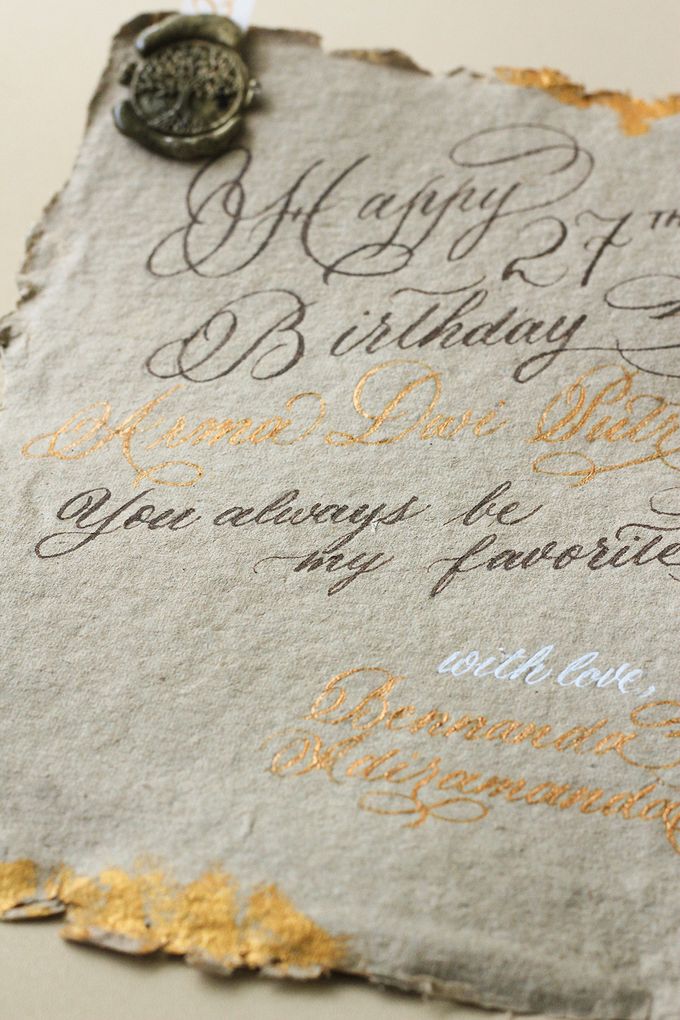 Happy
27TH
Birthday
Arma Dwi Putr
You always be
my favorite
with love,
Bennanda
Adizamanda